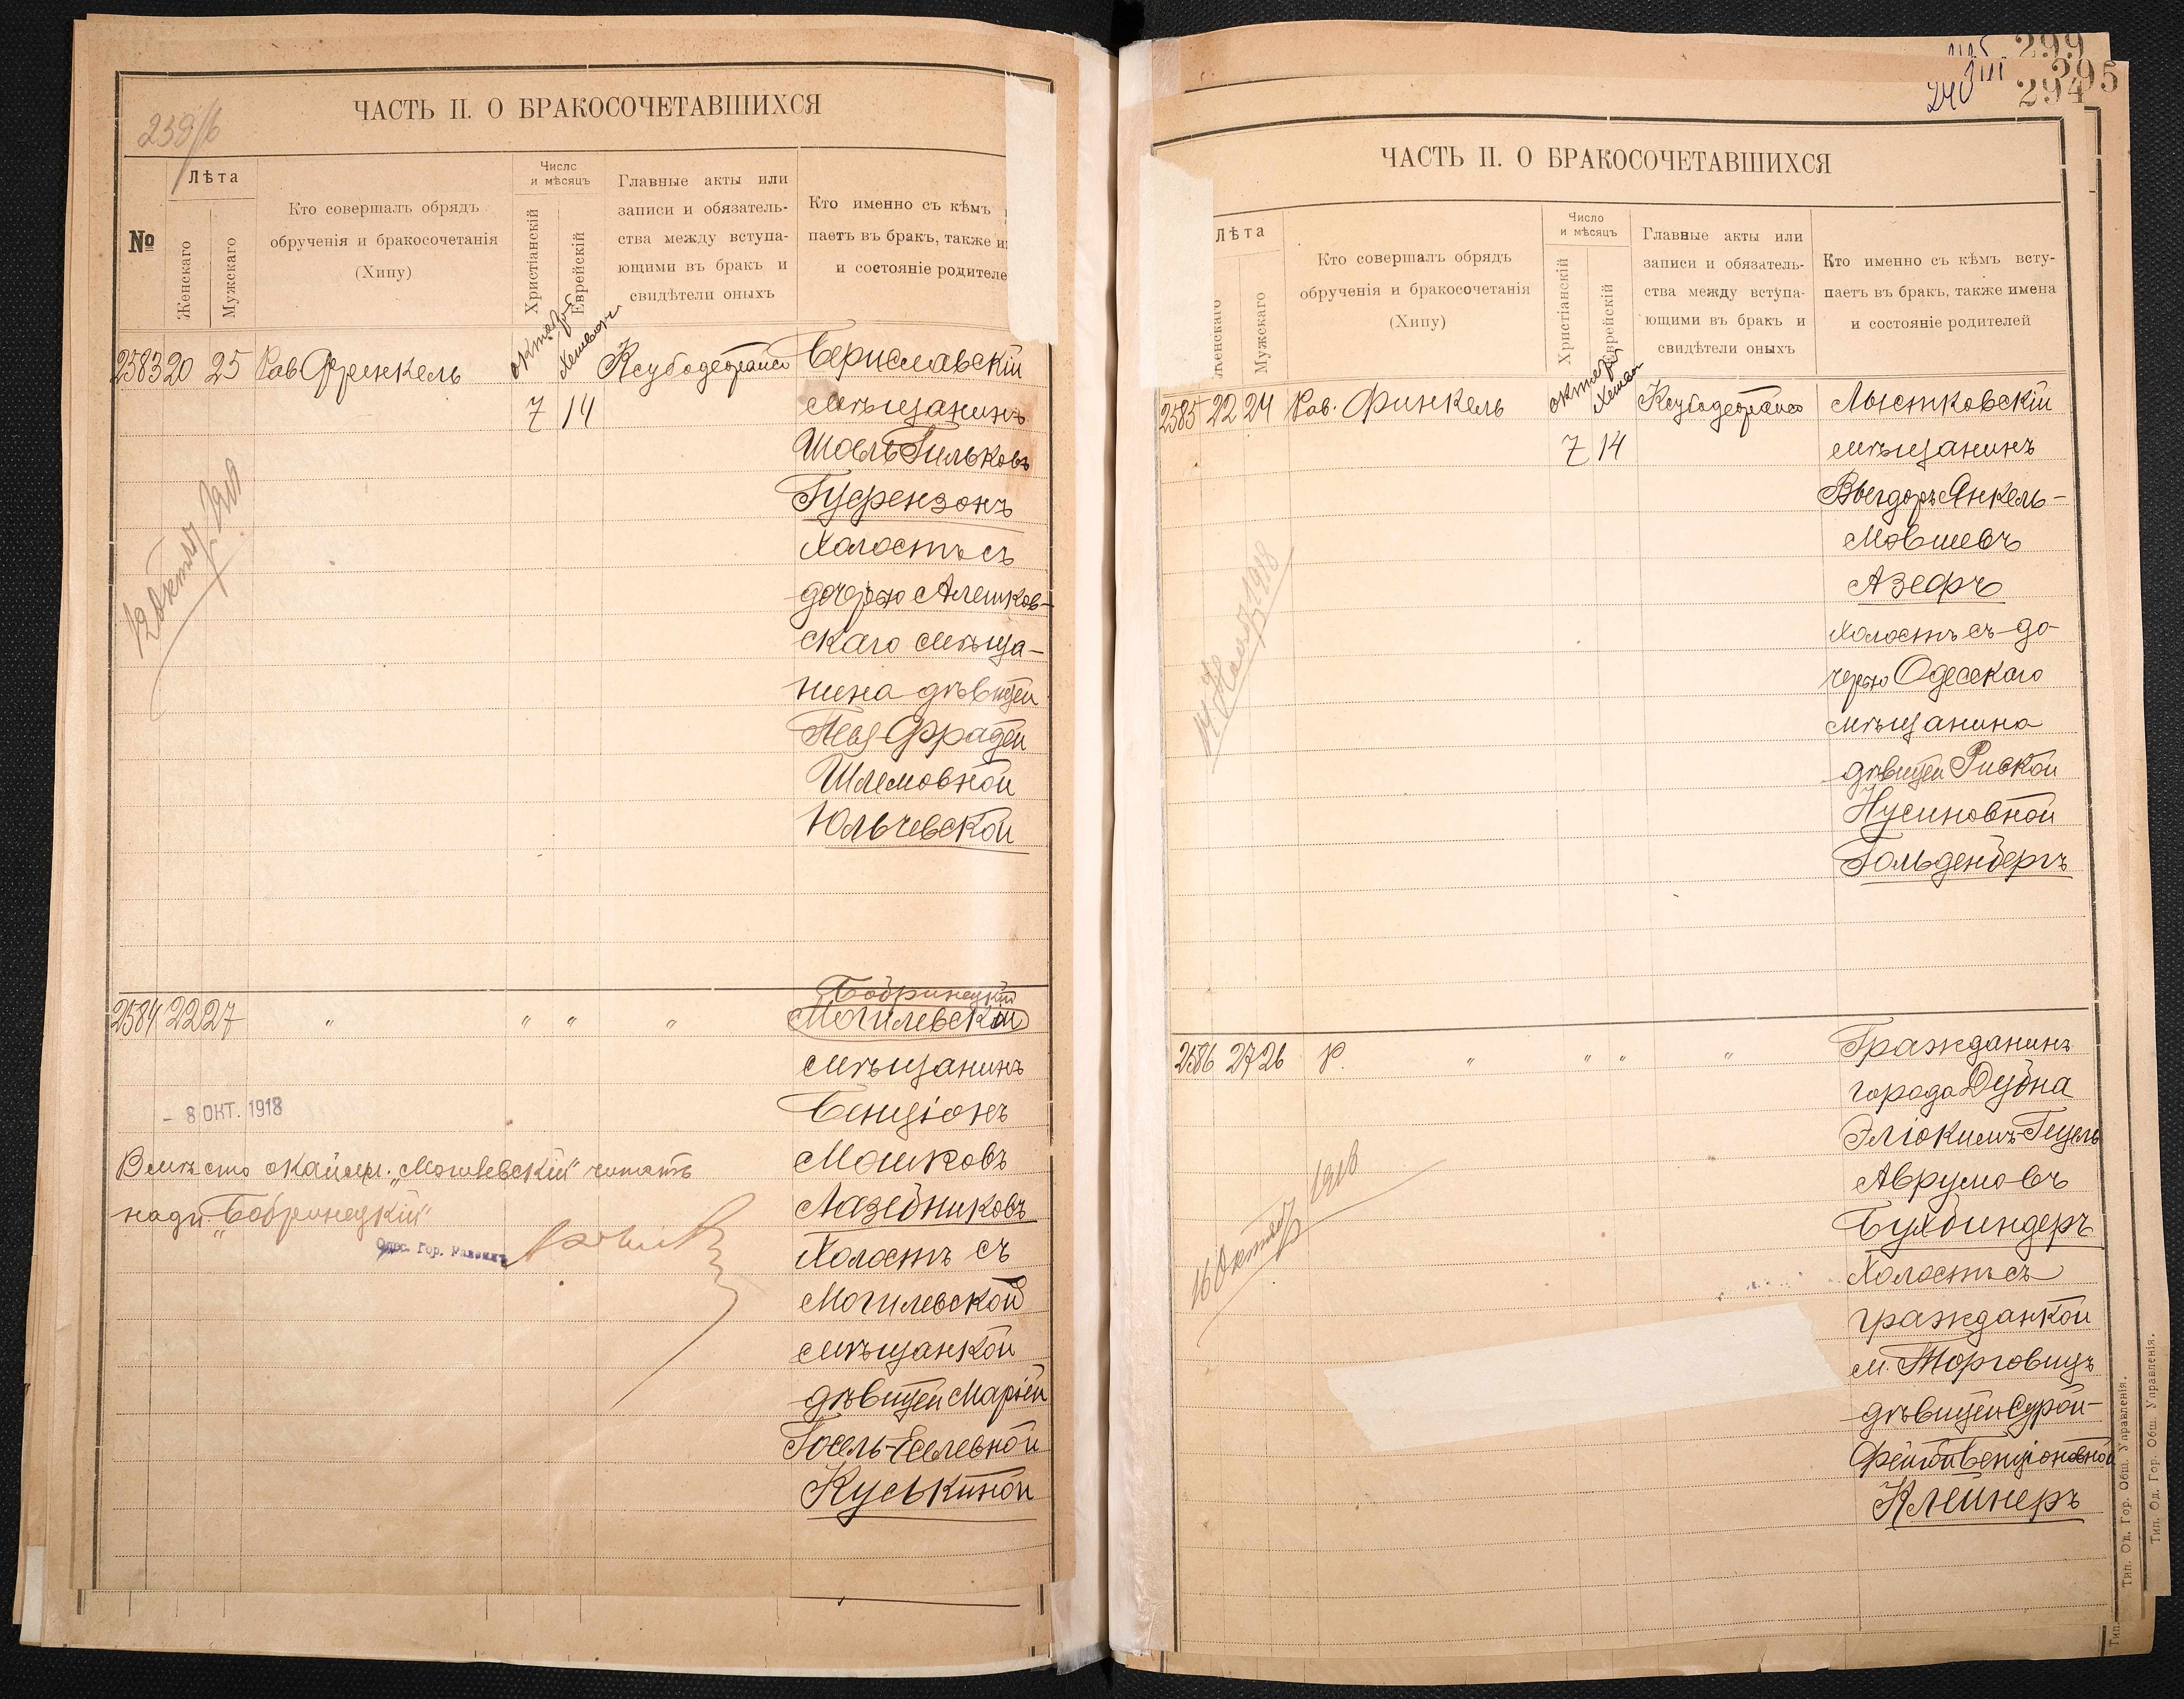 ЧАСТЬ II. О БРАКОСОЧЕТАВШИХСЯ
№
Лѣта
Женскаго
Мужскаго
Кто совершалъ обрядъ
обрученія и бракосочетанія
(Хипу)
Число
и мѣсяцъ
Христіанскій
Еврейскій
Главные акты или
записи и обязатель-
ства между вступа-
ющими въ бракъ и
свидѣтели оныхъ
Кто именно съ кѣмъ
паетъ въ бракъ, также и
и состояніе родителе
2583 20 25 Рав Френкель
октябрь
7 14
Бериславскій
мѣщанинъ
Шоелъ Гильковъ
Гуфензонъ
холостъ съ
дочерью Алешков-
скаго мѣща-
нина дѣвицей
Шлемовной
Юльчевской
12 октяб 1918
2584 22 27 " " " "
Бобринецкій
Могилевской
мѣщанинъ
Бенціонъ
Мошковъ
Лазебниковъ
холостъ съ
Могилевской
мѣщанкой
дѣвицей Маріей
Госель-Еселевной
Куськиной
- 8 ОКТ. 1918
Вмѣсто окайм. „Могилевскій" читать
надп. „Бобринецкій"
Одес. Гор. Раввинъ
299
295
294
240
ЧАСТЬ II. О БРАКОСОЧЕТАВШИХСЯ
Лѣта
Женскаго
Мужскаго
Кто совершалъ обрядъ
обрученія и бракосочетанія
(Хипу)
Число
и мѣсяцъ
Христіанскій
Еврейскій
Главные акты или
записи и обязатель-
ства между вступа-
ющими въ бракъ и
свидѣтели оныхъ
Кто именно съ кѣмъ всту-
паетъ въ бракъ, также имена
и состояніе родителей
2585 22 24 Рав. Финкель
октябрь
7 14
мѣщанинъ
Вигдоръ Янкель-
Мовшевъ
Азефъ
холостъ съ до-
черью Одесскаго
мѣщанина
дѣвицей Риской
Нусиновной
Гольденбергъ
14 Нояб 1918
2586 27 26 Р. " " " "
Гражданинъ
города Дубна
Эліокимъ-Гецель
Аврумовъ
Бухбиндеръ
холостъ съ
гражданкой
м. Торговицъ
дѣвицей Сурой-
Фейгой Бенціоновной
Клейнеръ
16 октяб 1918
Тип. Од. Гор. Общ. Управленія.
Тип. Од. Гор. Общ. Управленія.